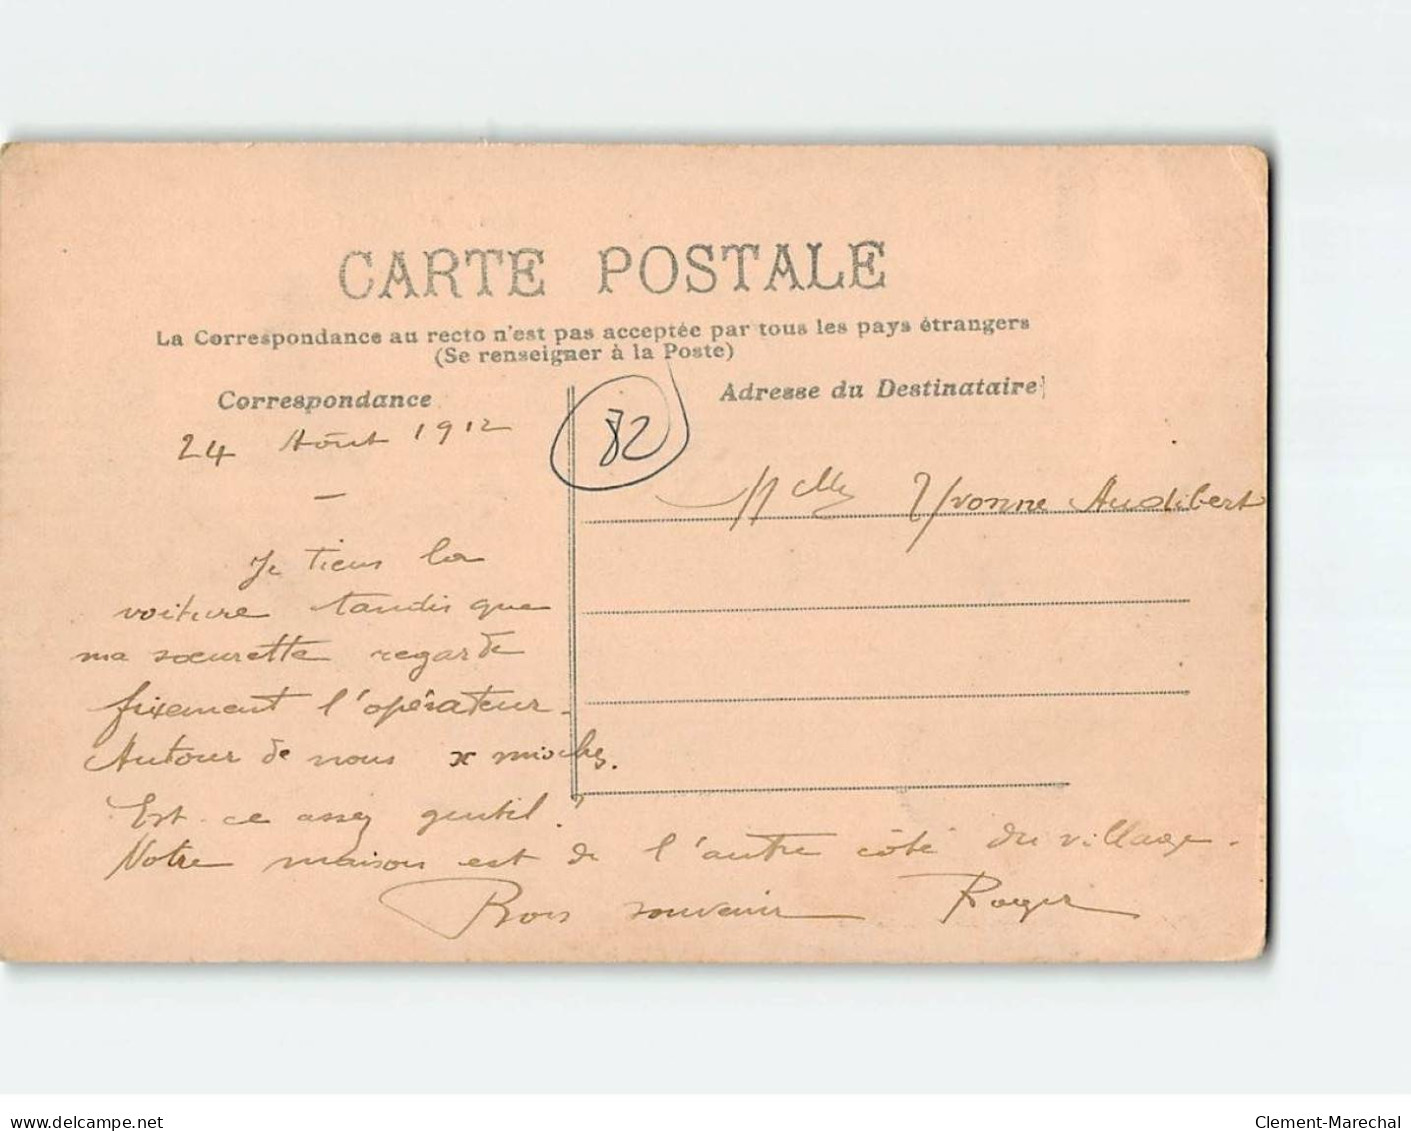 CARTE POSTALE
La Correspondance au recto n'est pas acceptée par tous les pays étrangers
(Se renseigner à la Poste)
Correspondance
Adresse du Destinataire
82
24 Août 1912
Mlle Yvonne Audibert
Je tiens la
voiture tandis que
ma soeurette regarde
fixement l'opérateur.
Autour de nous x mioches.
Est-ce assez gentil?
Notre maison est de l'autre côté du village.
Bons souvenirs Roger
www.delcampe.net
Clement-Marechal